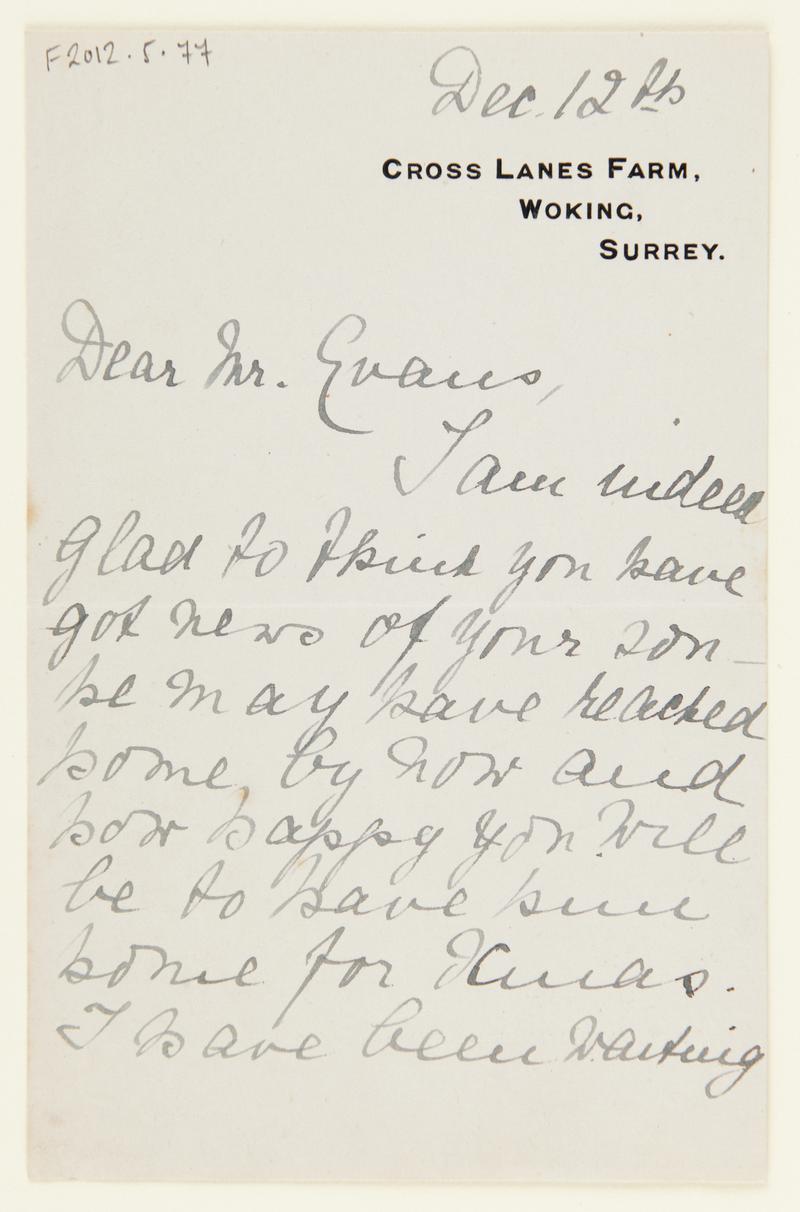 F2012.5.77
Dec. 12th
CROSS LANES FARM,
WOKING,
SURREY.
Dear Mr. Evans,
I am indeed
glad to think you have
got news of your son –
he may have reached
home by now and
how happy you will
be to have him
home for Xmas.
I have been waiting